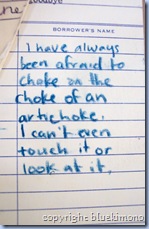 goodbye
BORROWER'S NAME
I have always
been afraid to
choke on the
choke of an
artichoke.
I can't even
touch it or
look at it.
copyright bluekimono